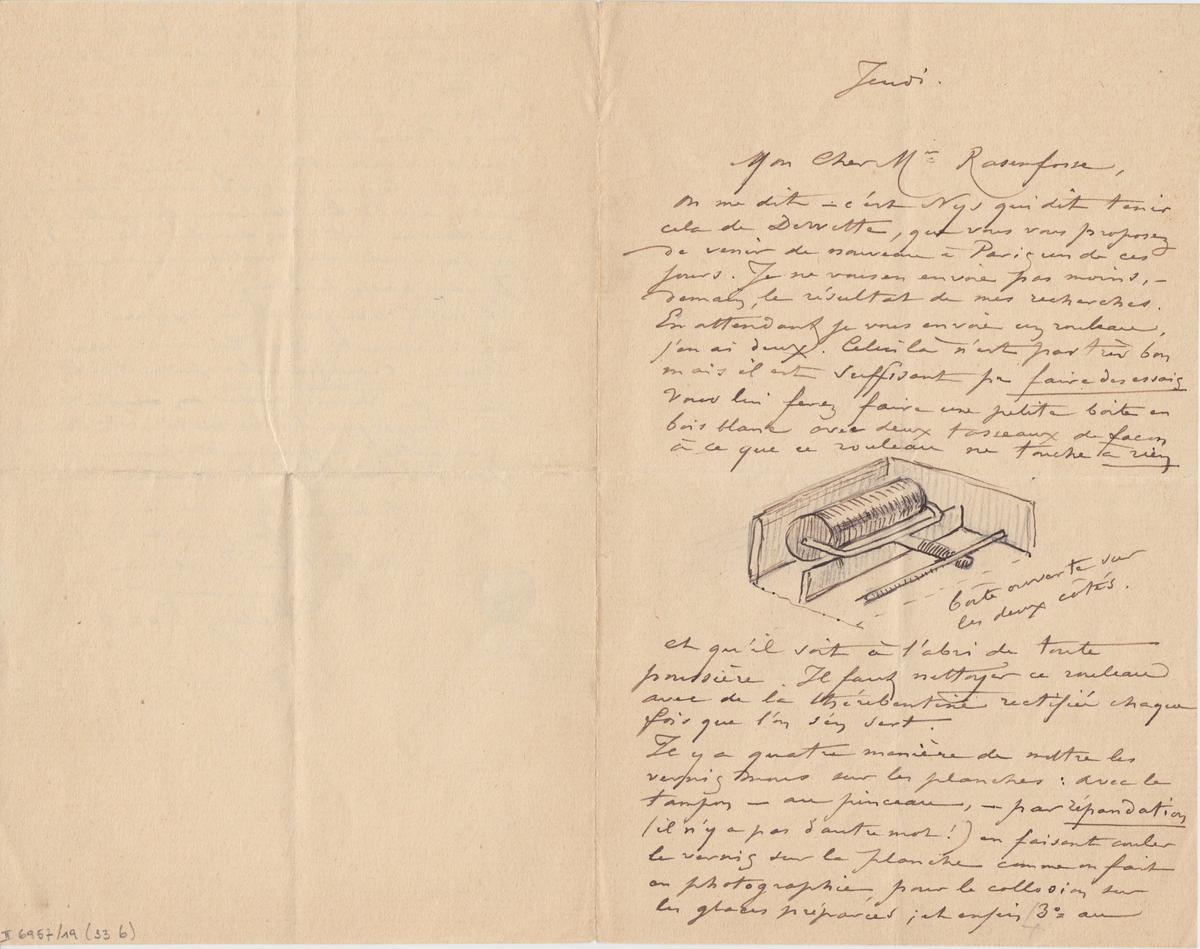 Jeudi.
Mon Cher Mr Rasenfosse,
On me dit – c'est Nys qui dit tenir
cela de Dewette, que vous vous proposez
de venir de nouveau à Paris un de ces
jours. Je ne vous en envoie pas moins, –
demain, le résultat de mes recherches.
En attendant je vous envoie un rouleau,
j'en ai deux. Celui là n'est pas très bon
mais il est suffisant pr faire des essais
Vous lui ferez faire une petite boîte en
bois blanc avec deux tasseaux de façon
à ce que ce rouleau ne touche à rien
boîte ouverte sur
les deux côtés.
et qu'il soit à l'abri de toute
poussière. Il faut nettoyer ce rouleau
avec de la thérébentine rectifiée chaque
fois que l'on s'en sert.
Il y a quatre manière de mettre les
vernis mous sur les planches : avec le
tampon – au pinceau, – par répandation
(il n'y a pas d'autre mot!) en faisant couler
le vernis sur la planche comme on fait
en photographie pour le collodion sur
les glaces préparées ; et enfin 3º au
II 6957/19 (33 b)